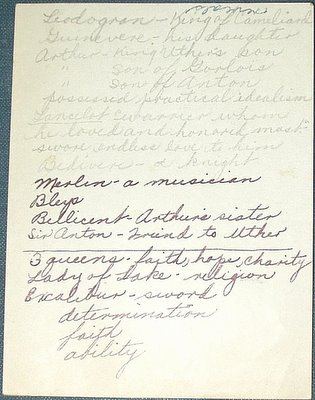 Leodogran - King of Cameliard
Guinevere - his daughter
Arthur - King Uthers son
" Son of Gorlois
" Son of Anton
possessed practical idealism
Lancelot warrior whom
he loved and honored most -
swore endless love to him
Bedivere - a knight
Merlin - a musician
Bleys
Bellicent - Arthurs sister
Sir Anton - Friend to Uther
3 queens - faith, hope, charity
Lady of Lake - religion
Excalibur - sword
determination
faith
ability